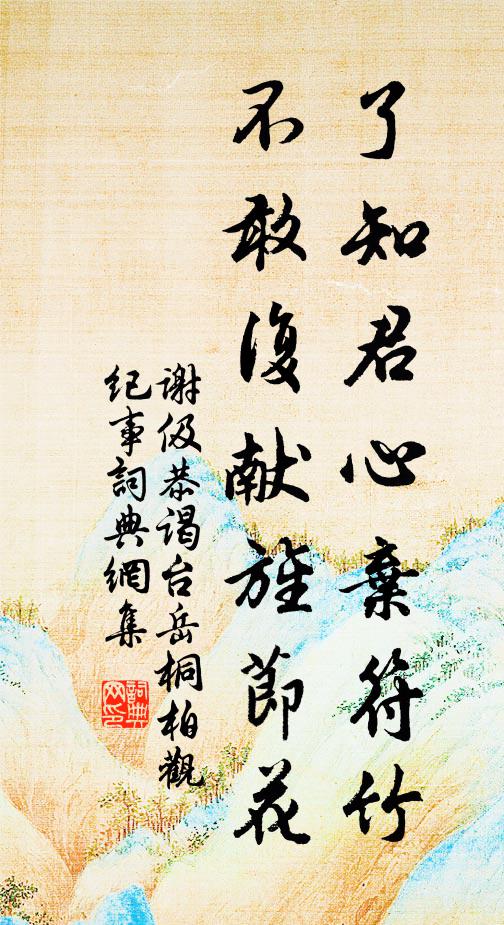 了知君心棄符竹
不敢復献旌節花
谢伋恭谒台岳桐柏觀
纪事詞典網集
詞典网印